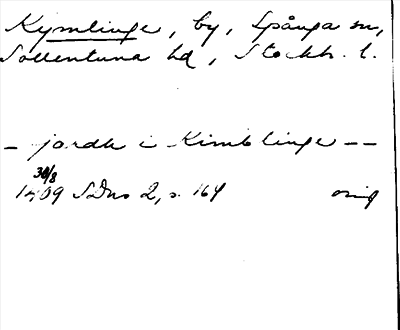 Kymlinge, by, Spånga sn,
Sollentuna hd, Stockh. l.
– jordh i Kimblinge – –
30/8
1409 SDns 2, s. 164 orig